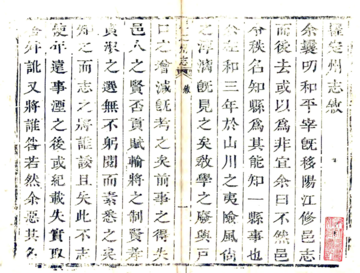 羅定州志敘
余曩叨和平宰旣移陽江修邑志
而後去或以爲非宜余曰不然邑
令秩名知縣爲其能知一縣事也
余在和三年於山川之夷險風俗
之淳漓旣見之矣敎學之廢興戸
口之增減旣考之矣前事之得失
邑人之賢否貢賦輸將之制賢
之選無不躬閱而素悉之矣
知之而志之將誰諉且失此不志
使年遠事湮之後或紀載失實取
舍外訛又將誰咎若然余惡其
敘